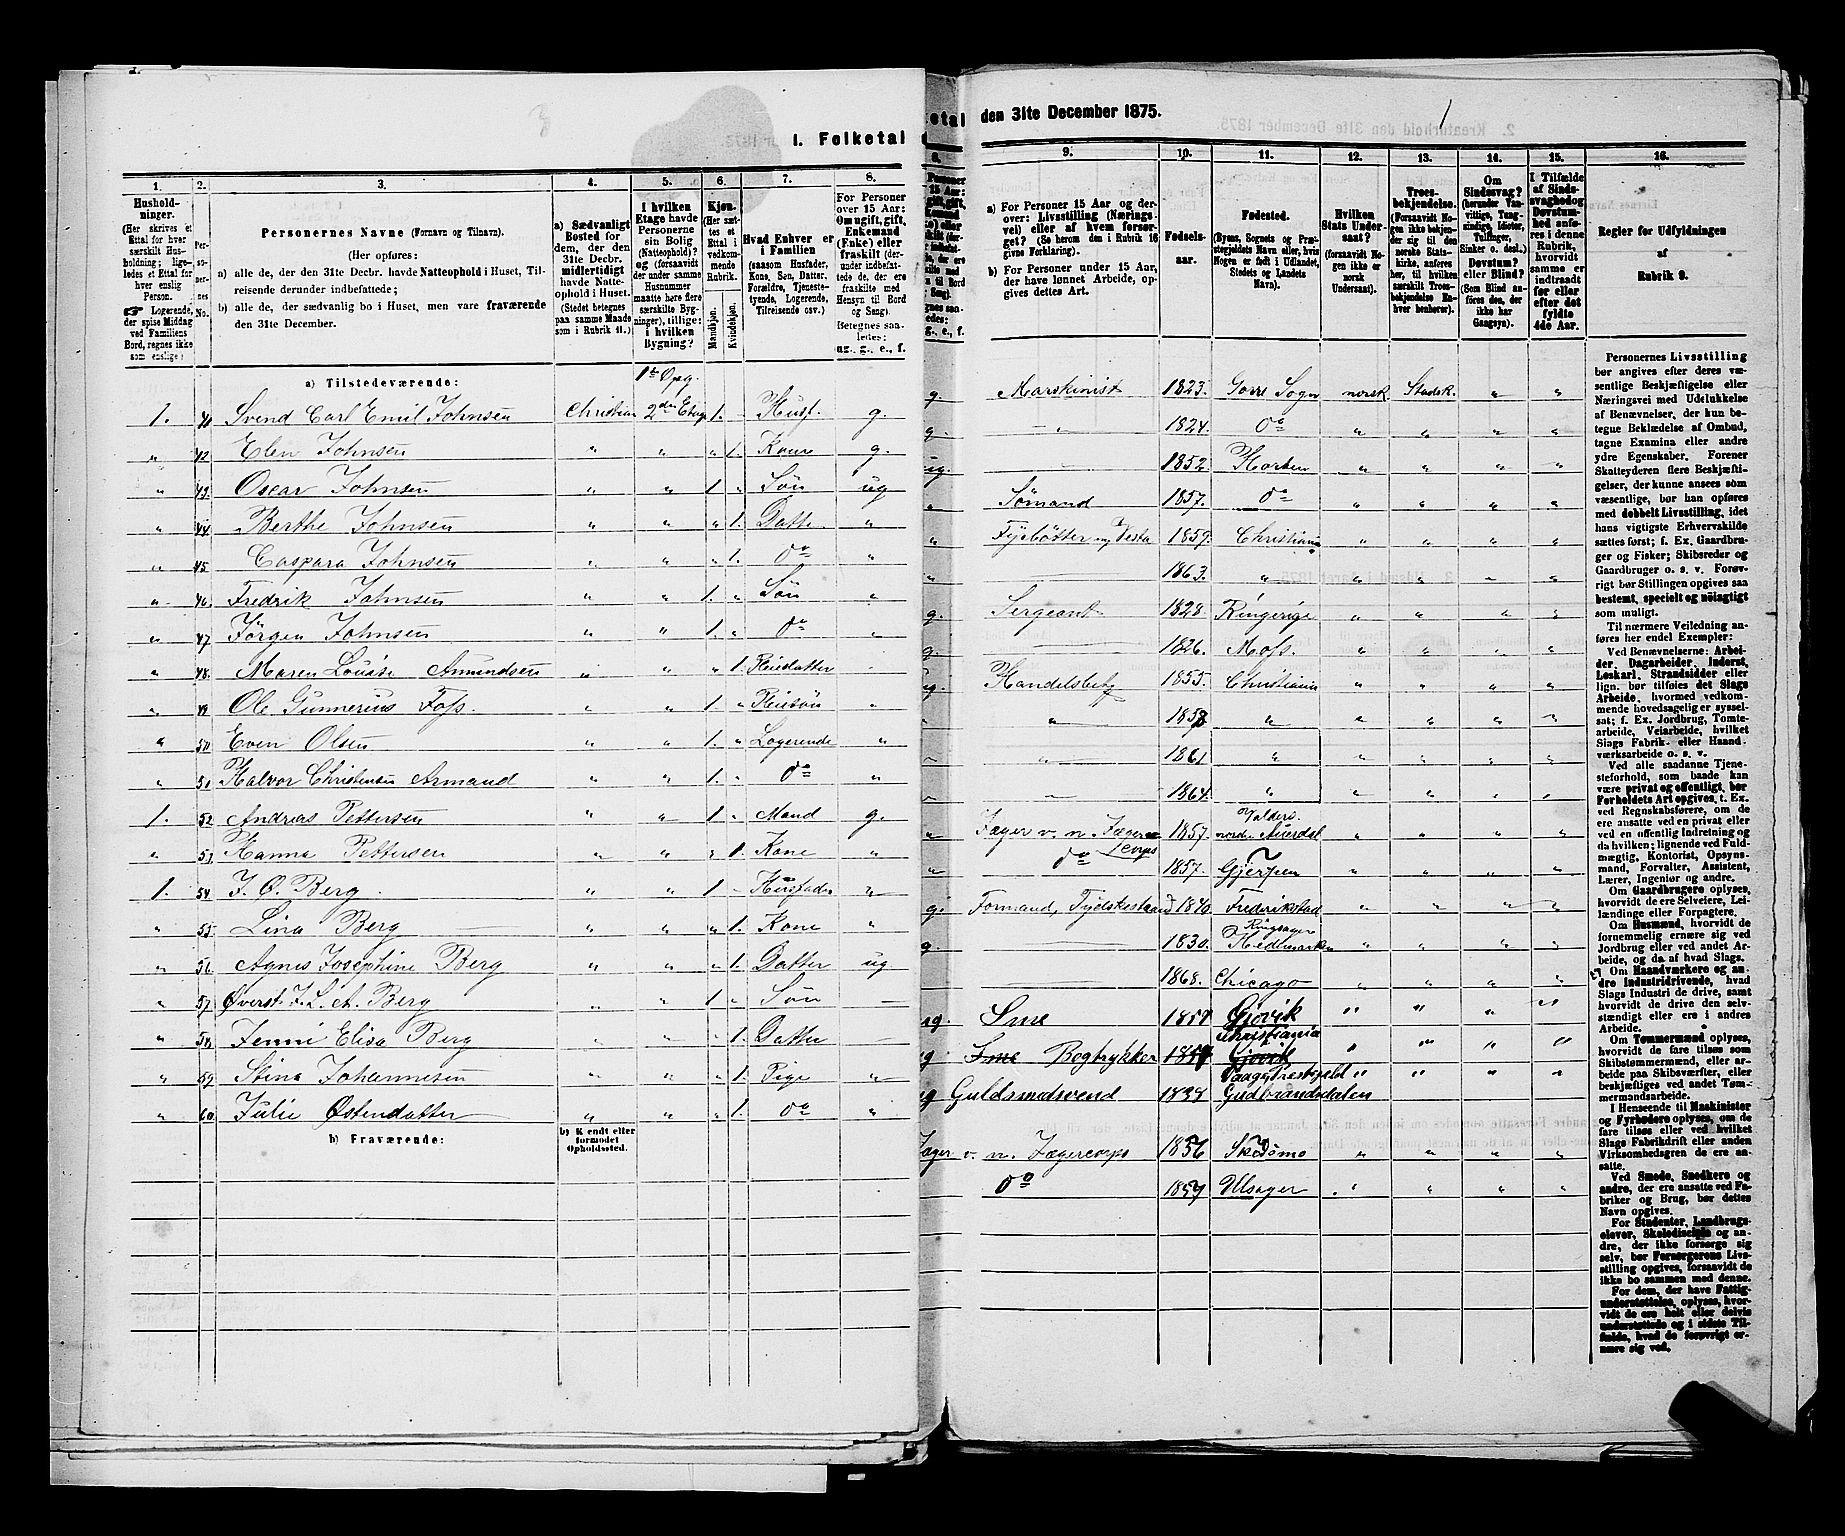 I. Folketal
etal den 31te December 1875.
1. 2. 3. 4. 5. 6. 7. 8.
Hushold-
ninger.
(Her sættes et
Ettal for hver
særskilt Hus-
holdning; lige-
ledes et Ettal for
hver enslig
Person.
Logerende,
der spise Middag
ved Familiens
Bord, regnes ikke
som enslige.)
Per-
so-
ner-
nes
No.
Personernes Navne (Fornavn og Tilnavn).
(Her opføres:
a) alle de, der den 31te Decbr. havde Natteophold i Huset, Til-
reisende derunder indbefattede;
b) alle de, der sædvanlig bo i Huset, men vare fraværende
den 31te December.
a) Sædvanligt
Bosted for
dem, der den
31te Decbr.
midlertidigt
havde Natte-
ophold i Huset.
(Stedet betegnes
paa samme Maade
som i Rubrik 11.)
I hvilken
Etage havde
Personerne
sin Bolig
(Natteophold)?
og (forsaavidt
der under samme
Husnummer
maatte høre flere
særskilte Byg-
ninger), tillige:
i hvilken
Bygning?
Kjøn.
(Her sæt-
tes et
Ettal i
vedkom-
mende
Rubrik.
Mandkjøn.
Kvindekjøn.
Hvad Enhver er
i Familien
(saasom Husfader,
Kone, Søn, Datter,
Forældre, Tjeneste-
tyende, Logerende,
Tilreisende osv.)
For Personer
over 15 Aar:
Om ugift, gift,
Enkemand
(Enke) eller
fraskilt (der-
under indbefat-
tede de, der ere
fraskilte med
Hensyn til Bord
og Seng).
Betegnes saa-
ledes:
ug., g., e., f.
a) Tilstedeværende:
1te Opg.
1. Svend Carl Emil Johnsen Christian 2den Etage 1. Husf. g.
" 42 Elen Johnsen " " " 1. Kone g.
" 43. Oscar Johnsen " " 1. " Søn ug
" 44. Berthe Johnsen " " " 1. Datter "
" 45 Caspara Johnsen " " 1. do "
" 46 Fredrik Johnsen " " 1. " Søn "
" 47 Jørgen Johnsen " " 1. " do "
" 48. Maren Louise Amundsen " " " 1. Pleiedatter "
" 49 Ole Gunnerius Foss. " " 1. " Pleiesøn "
" 50 Even Olsen " " 1. " Logerende "
" 51 Halvor Christensen Armand " " 1. " do "
1. 52 Andreas Pettersen " " 1 " Mand g.
" 53 Hanna Pettersen " " " 1. Kone "
1. 54. J. O. Berg. " " 1. Husfader "
" 55. Lina Berg " " " 1. Kone "
" 56. Agnes Josephine Berg " " " 1. Datter ug
" 57. J. L. A. Berg 1 " Søn
" 58. Jenni Elisa Berg " " " 1. Datter
" 59. Stina Johannesen " " " 1. Pige "
" 60. Julie Østensdatter " " " 1. do "
b) Fraværende:
b) Kjendt eller
formodet
Opholdssted.
9. 10. 11. 12. 13. 14. 15. 16.
a) For Personer 15 Aar og der-
over: Livsstilling (Nærings-
vei) eller af hvem forsør-
get? (Se herom den i Rubrik 16
givne Forklaring).
b) For Personer under 15 Aar,
der have lønnet Arbeide, op-
gives dettes Art.
Fødsels-
aar.
Fødested.
(Byens, Sognets og Præ-
stegjeldets Navn eller, hvis
Nogen er født i Udlandet,
Stedets og Landets
Navn).
Hvilken
Stats Under-
saat?
(forsaavidt No-
gen ikke er
norsk
Undersaat).
Troes-
bekjendelse.
(Forsaavidt No-
gen ikke bekjen-
der sig til den
norske Stats-
kirke, anføres
her, til hvilken
særskilt Troes-
bekjendelse En-
hver henhører).
Om
Sindssvag?
(herunder Van-
vittige, Tung-
sindige, Idioter,
Tullinger,
Sinker o. desl.)
Døvstum?
eller Blind?
(Som Blind an-
føres den, der
ikke har
Gangsyn).
I Tilfælde
af Sinds-
svaghed og
Døvstum-
hed anfø-
res i denne
Rubrik,
hvorvidt
samme er
indtraadt
før eller
efter det
fyldte
4de Aar.
Regler for Udfyldningen
af
Rubrik 9.
g. Maskinist 1823. Sogn norsk Statsk. " "
g. " 1824. do " " " "
ug. 1852. Horten " " " "
" Sømand 1857. do " " " "
" 1859. Christiania " " " "
" 1863. " " " " "
g. Sergeant 1828. Ringerige " " " "
g. 1826. Moss. " " " "
ug. Handelsbetj 1855. Christiania " " " "
" " 1858 " " " " "
" " 1861 " " " " "
" 1864. " " " " "
" Jæger v. n. Jæger Corps 1857. Valders. nordre Aurdal " " " "
" do 1857. Gjerpen " " " "
g. Formand, 1840. Frederikstad " " " "
g. 1830. Ringsager Hedemarken " " " "
1868. Chicago " " " "
ug. 1857 Gjøvik " " " "
ug Bogtrykker 1857 Christiania Gjøvik " " " "
ug Guldsmedsvend 1839 Vaage Prestegjeld Gudbrandsdalen " " " "
Jæger v. n. Jægercorps 1856 Skedsmo " " " "
do 1857 Ulsager " " " "
Personernes Livsstilling
bør angives efter deres væ-
sentlige Beskjæftigelse eller
Næringsvei med Udelukkelse
af Benævnelser, der kun be-
tegne Beklædelse af Ombud,
tagne Examina eller andre
ydre Egenskaber. Forener
Skatteyderen flere Beskjæfti-
gelser, der kunne ansees som
væsentlige, bør han opføres
med dobbelt Livsstilling, idet
hans vigtigste Erhvervskilde
sættes først; f. Ex. Gaardbru-
ger og Fisker; Skibsreder og
Gaardbruger o. s. v. Forøv-
rigt bør Stillingen opgives saa
bestemt, specielt og nøiagtigt
som muligt.
Til nærmere Veiledning an-
føres her endel Exempler:
Ved Benævnelserne: Arbei-
der, Dagarbeider, Inderst,
Løskarl, Strandsidder eller
lign. bør tilføies det Slags
Arbeide, hvormed vedkom-
mende hovedsagelig er syssel-
sat; f. Ex. Jordbrug, Tomte-
arbeide, Veiarbeide, hvilket
Slags Fabrik- eller Haand-
værksarbeide o. s. v.
Ved alle saadanne Tjene-
steforhold, som baade kan
være privat og offentligt, bør
Forholdets Art opgives, t. Ex.
ved Regnskabsførere, om de
ere ansatte ved en privat eller
ved en offentlig Indretning og
da hvilken; lignende ved Fuld-
mægtig, Kontorist, Opsyns-
mand, Forvalter, Assistent,
Lærer, Ingeniør og andre.
Om Gaardbrugere oplyses,
hvorvidt de ere Selveiere, Lei-
lændinge eller Forpagtere.
Om Husmænd, hvorvidt de
fornemmelig ernære sig ved
Jordbrug eller ved andet Ar-
beide, og da af hvad Slags.
Om Haandværkere og an-
dre Industridrivende, hvad
Slags Industri de drive, samt
hvorvidt de drive den selv-
stændigt eller ere i andres
Arbeide.
Om Tømmermænd oplyses,
hvorvidt de fare tilsøs som
Skibstømmermænd, eller ar-
beide paa Skibsværfter, eller
beskjæftiges ved andet Tøm-
mermandsarbeide.
I Henseende til Maskinister
og Fyrbødere oplyses, om de
fare tilsøs eller ved hvilket
Slags Fabrikdrift eller anden
Virksomhedsgren de ere an-
satte.
Ved Smede, Snedkere og
andre, der ere ansatte ved Fa-
briker og Brug, bør dettes
Navn opgives.
For Studenter, Landbrugs-
elever, Skoledisciple og an-
dre, der ikke forsørge sig
selv, bør Forsørgerens Livs-
stilling opgives, forsaavidt de
ikke bo sammen med denne.
For dem, der have Fattig-
understøttelse, oplyses, hvor-
vidt de ere helt eller delvis
understøttede og i sidste Til-
fælde, hvad de forøvrigt er-
nære sig ved.